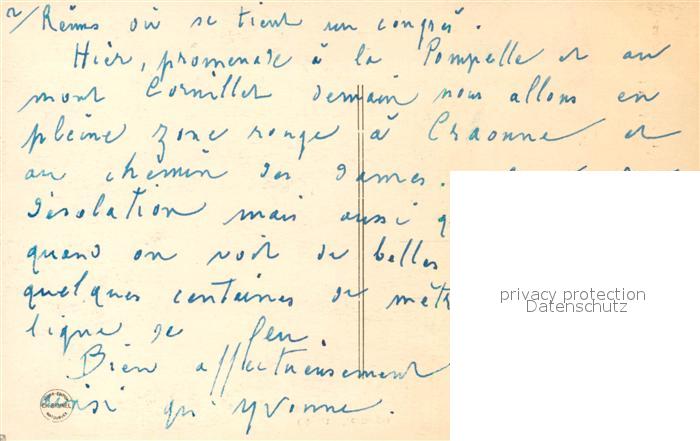 2/ Reims où se tient un congrès.
Hier, promenade à la Pompelle et au
mont Cornillet demain nous allons en
pleine zone rouge à Craonne et
au chemin des dames.
désolation mais aussi
quand on voit de belles
quelques centaines de mèt
ligne de feu
Bien affectueusement
ainsi qu'Yvonne.
privacy protection
Datenschutz